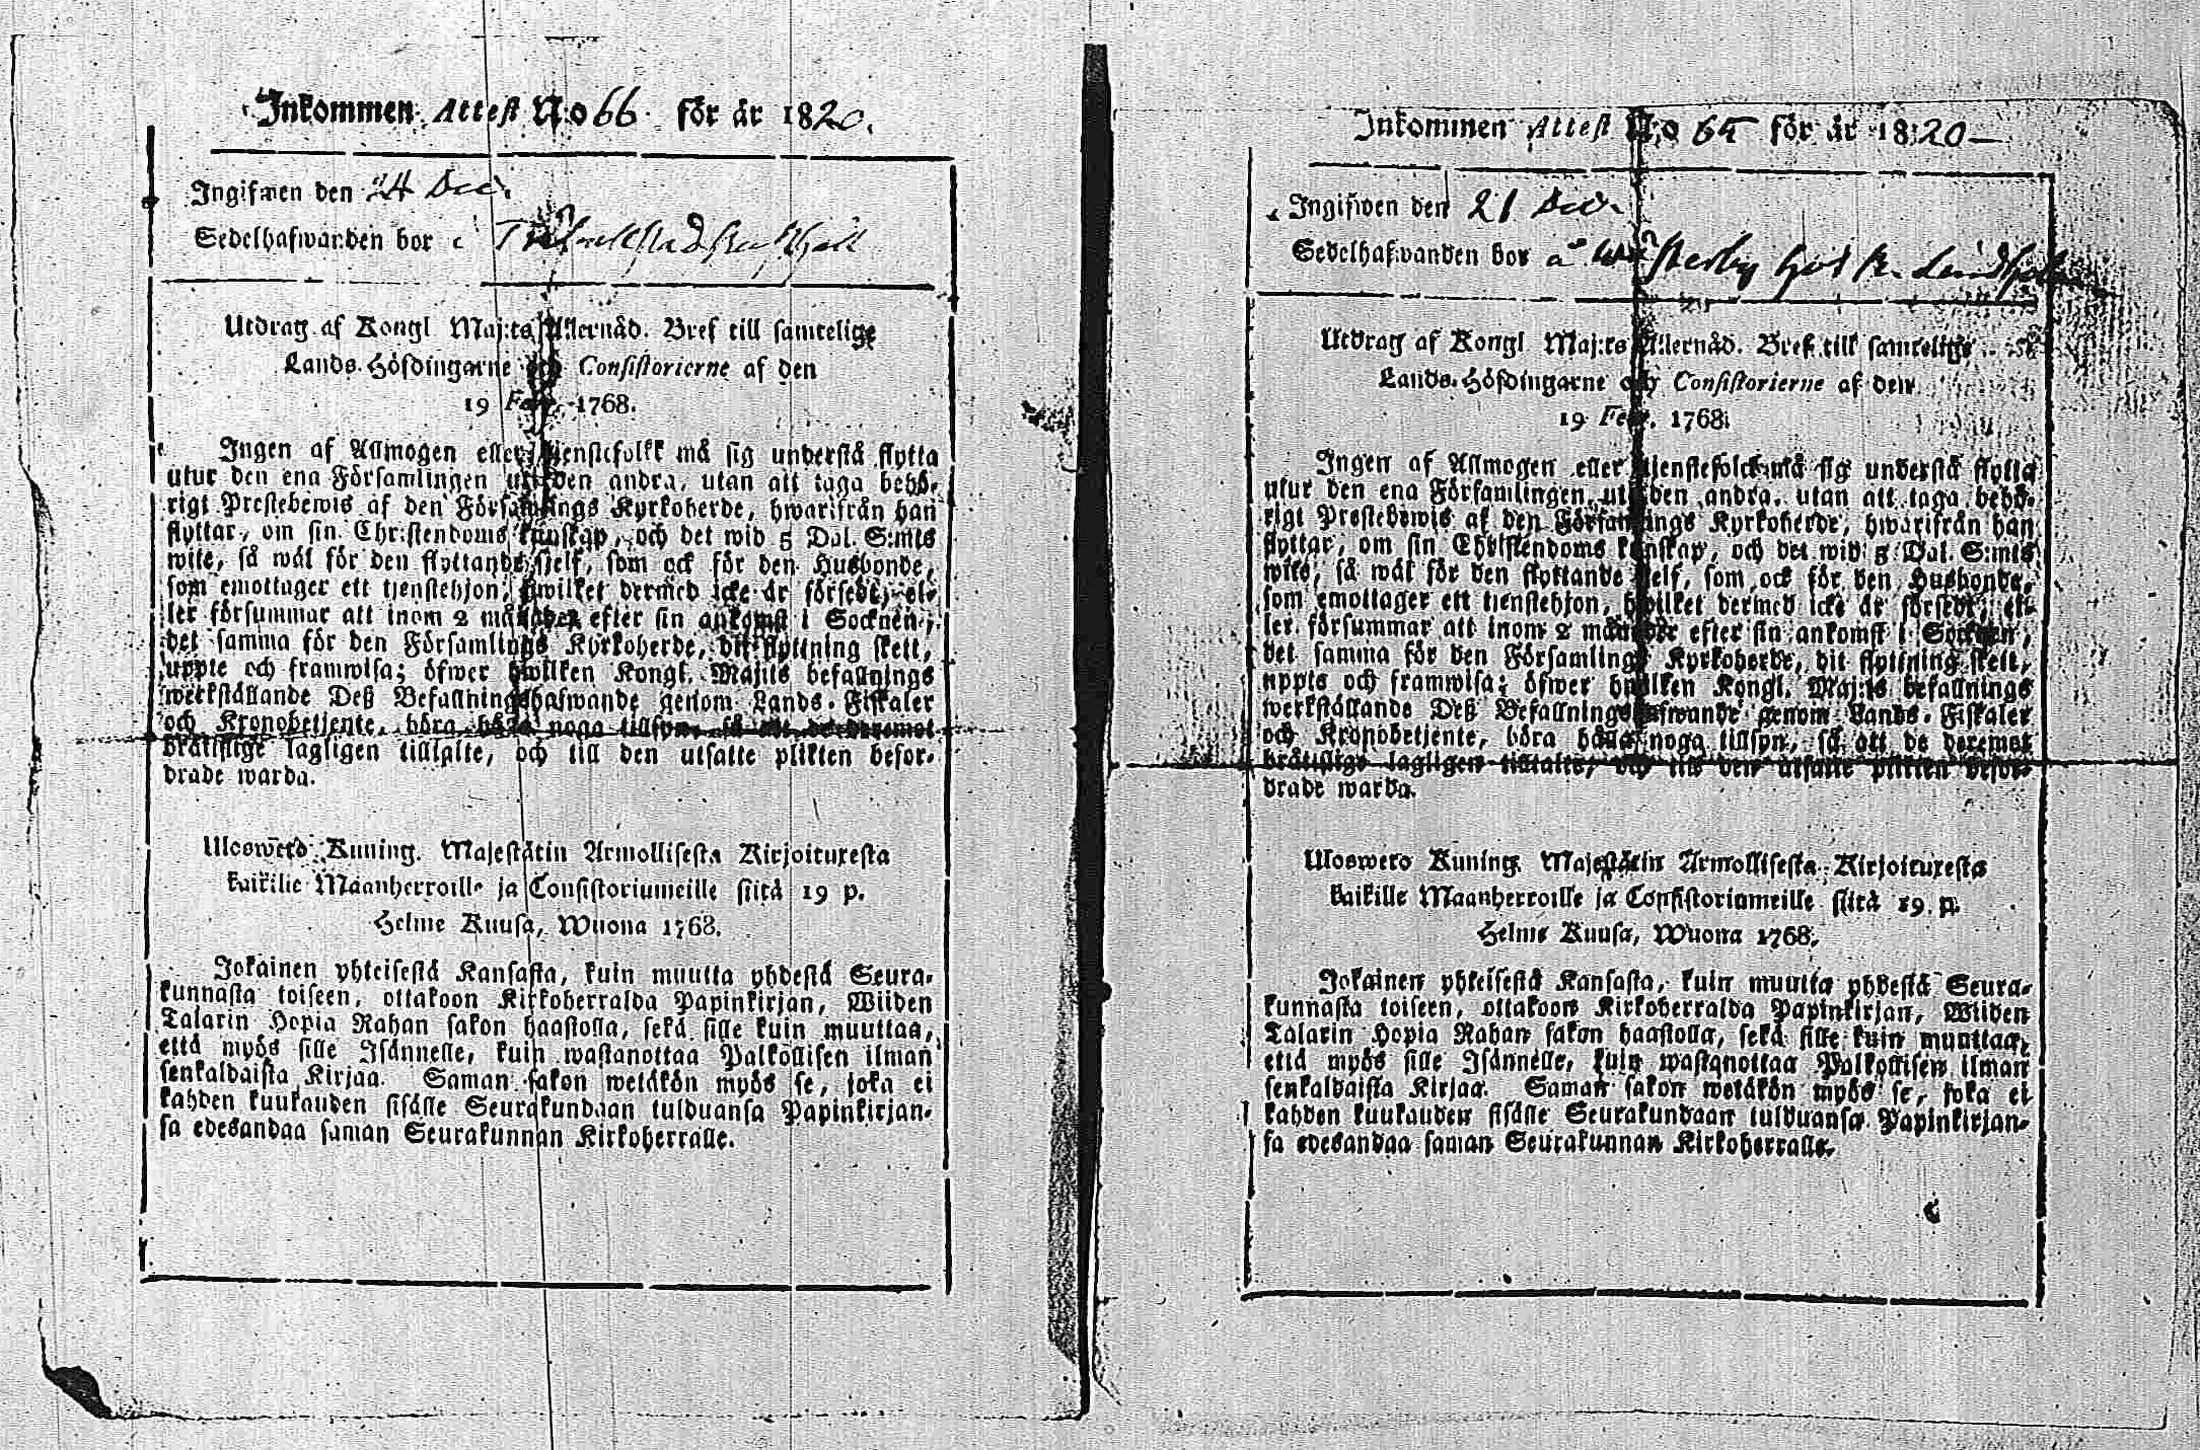 Inkommen Attest No 66 för år 1820.
Ingifwen den 24 Dec.
Sedelhafwanden bor i
Utdrag af Kongl Maj:ts Allernåd. Bref till samtelige
Lands-Höfdingarne och Consistorierne af den
19 Febr. 1768.
Ingen af Allmogen eller tjenstefolkk må sig understå flytta
utur den ena Församlingen uti den andra, utan att taga behö-
rigt Prestebewis af den Församlings Kyrkoherde, hwarifrån han
flyttar, om sin Christendoms kunskap, och det wid 5 Dal. S:mts
wite, så wäl för den flyttande sjelf, som ock för den Husbonde,
som emottager ett tjenstehjon, hwilket dermed icke är försedt, el-
ler försummar att inom 2 månader efter sin ankomst i Socknen,
det samma för den Församlings Kyrkoherde, dit flyttning skett,
uppte och framwisa; öfwer hwilken Kongl. Maj:ts befallnings
werkställande Deß Befallningshafwande genom Lands-Fiskaler
och Kronobetjente, böra hålla noga tillsyn, så att de deremot
brättslige lagligen tilltalte, och till den utsatte plikten befor-
drade warda.
Ulosweto Kuning. Majestätin Armollisesta Kirjoituxesta
kaikille Maanherroille ja Consistoriumeille siitä 19 p.
Helme Kuusa, Wuona 1768.
Jokainen yhteisestä Kansasta, kuin muutta yhdestä Seura-
kunnasta toiseen, ottakoon Kirkoherralda Papinkirjan, Wiiden
Talarin Hopia Rahan sakon haastolla, sekä sille kuin muuttaa,
että myös sille Isännelle, kuin wastanottaa Palkollisen ilman
senkaldaista Kirjaa. Saman sakon wetäkön myös se, joka ei
kahden kuukauden sisälle Seurakundaan tulduansa Papinkirjan-
sa edesandaa saman Seurakunnan Kirkoherralle.
Inkommen Attest No 65 för år 1820
Ingifwen den 21 Dec.
Sedelhafwanden bor å
Utdrag af Kongl Maj:ts Allernåd. Bref till samtelige
Lands-Höfdingarne och Consistorierne af den
19 Febr. 1768.
Ingen af Allmogen eller tjenstefolck må sig understå flytta
utur den ena Församlingen uti den andra, utan att taga behö-
rigt Prestebewis af den Församlings Kyrkoherde, hwarifrån han
flyttar, om sin Christendoms kunskap, och det wid 5 Dal. S:mts
wite, så wäl för den flyttande sjelf, som ock för den Husbonde,
som emottager ett tjenstehjon, hwilket dermed icke är försedt, el-
ler försummar att inom 2 månader efter sin ankomst i Socknen,
det samma för den Församlings Kyrkoherde, dit flyttning skett,
uppte och framwisa; öfwer hwilken Kongl. Maj:ts befallnings
werkställande Deß Befallningshafwande genom Lands-Fiskaler
och Kronobetjente, böra hålla noga tillsyn, så att de deremot
brättslige lagligen tilltalte, och till den utsatte plikten befor-
drade warda.
Ulosweto Kuning. Majestätin Armollisesta Kirjoituxesta
kaikille Maanherroille ja Consistoriumeille siitä 19. p.
Helme Kuusa, Wuona 1768.
Jokainen yhteisestä Kansasta, kuin muutta yhdestä Seura-
kunnasta toiseen, ottakoon Kirkoherralda Papinkirjan, Wiiden
Talarin Hopia Rahan sakon haastolla, sekä sille kuin muuttaa,
että myös sille Isännelle, kuin wastanottaa Palkollisen ilman
senkaldaista Kirjaa. Saman sakon wetäkön myös se, joka ei
kahden kuukauden sisälle Seurakundaan tulduansa Papinkirjan-
sa edesandaa saman Seurakunnan Kirkoherralle.